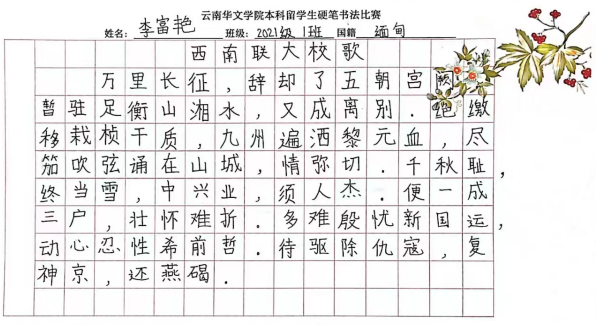 云南华文学院本科留学生硬笔书法比赛
姓名: 李富艳 班级: 2021级 1班 国籍 缅甸
西南联大校歌
万里长征,辞却了五朝宫阙
暂驻足衡山湘水,又成离别.绝缴
移栽桢干质,九州遍洒黎元血,尽
笳吹弦诵在山城,情弥切.千秋耻,
终当雪,中兴业,须人杰.便一成
三户,壮怀难折.多难殷忧新国运,
动心忍性希前哲.待驱除仇寇,复
神京,还燕碣.